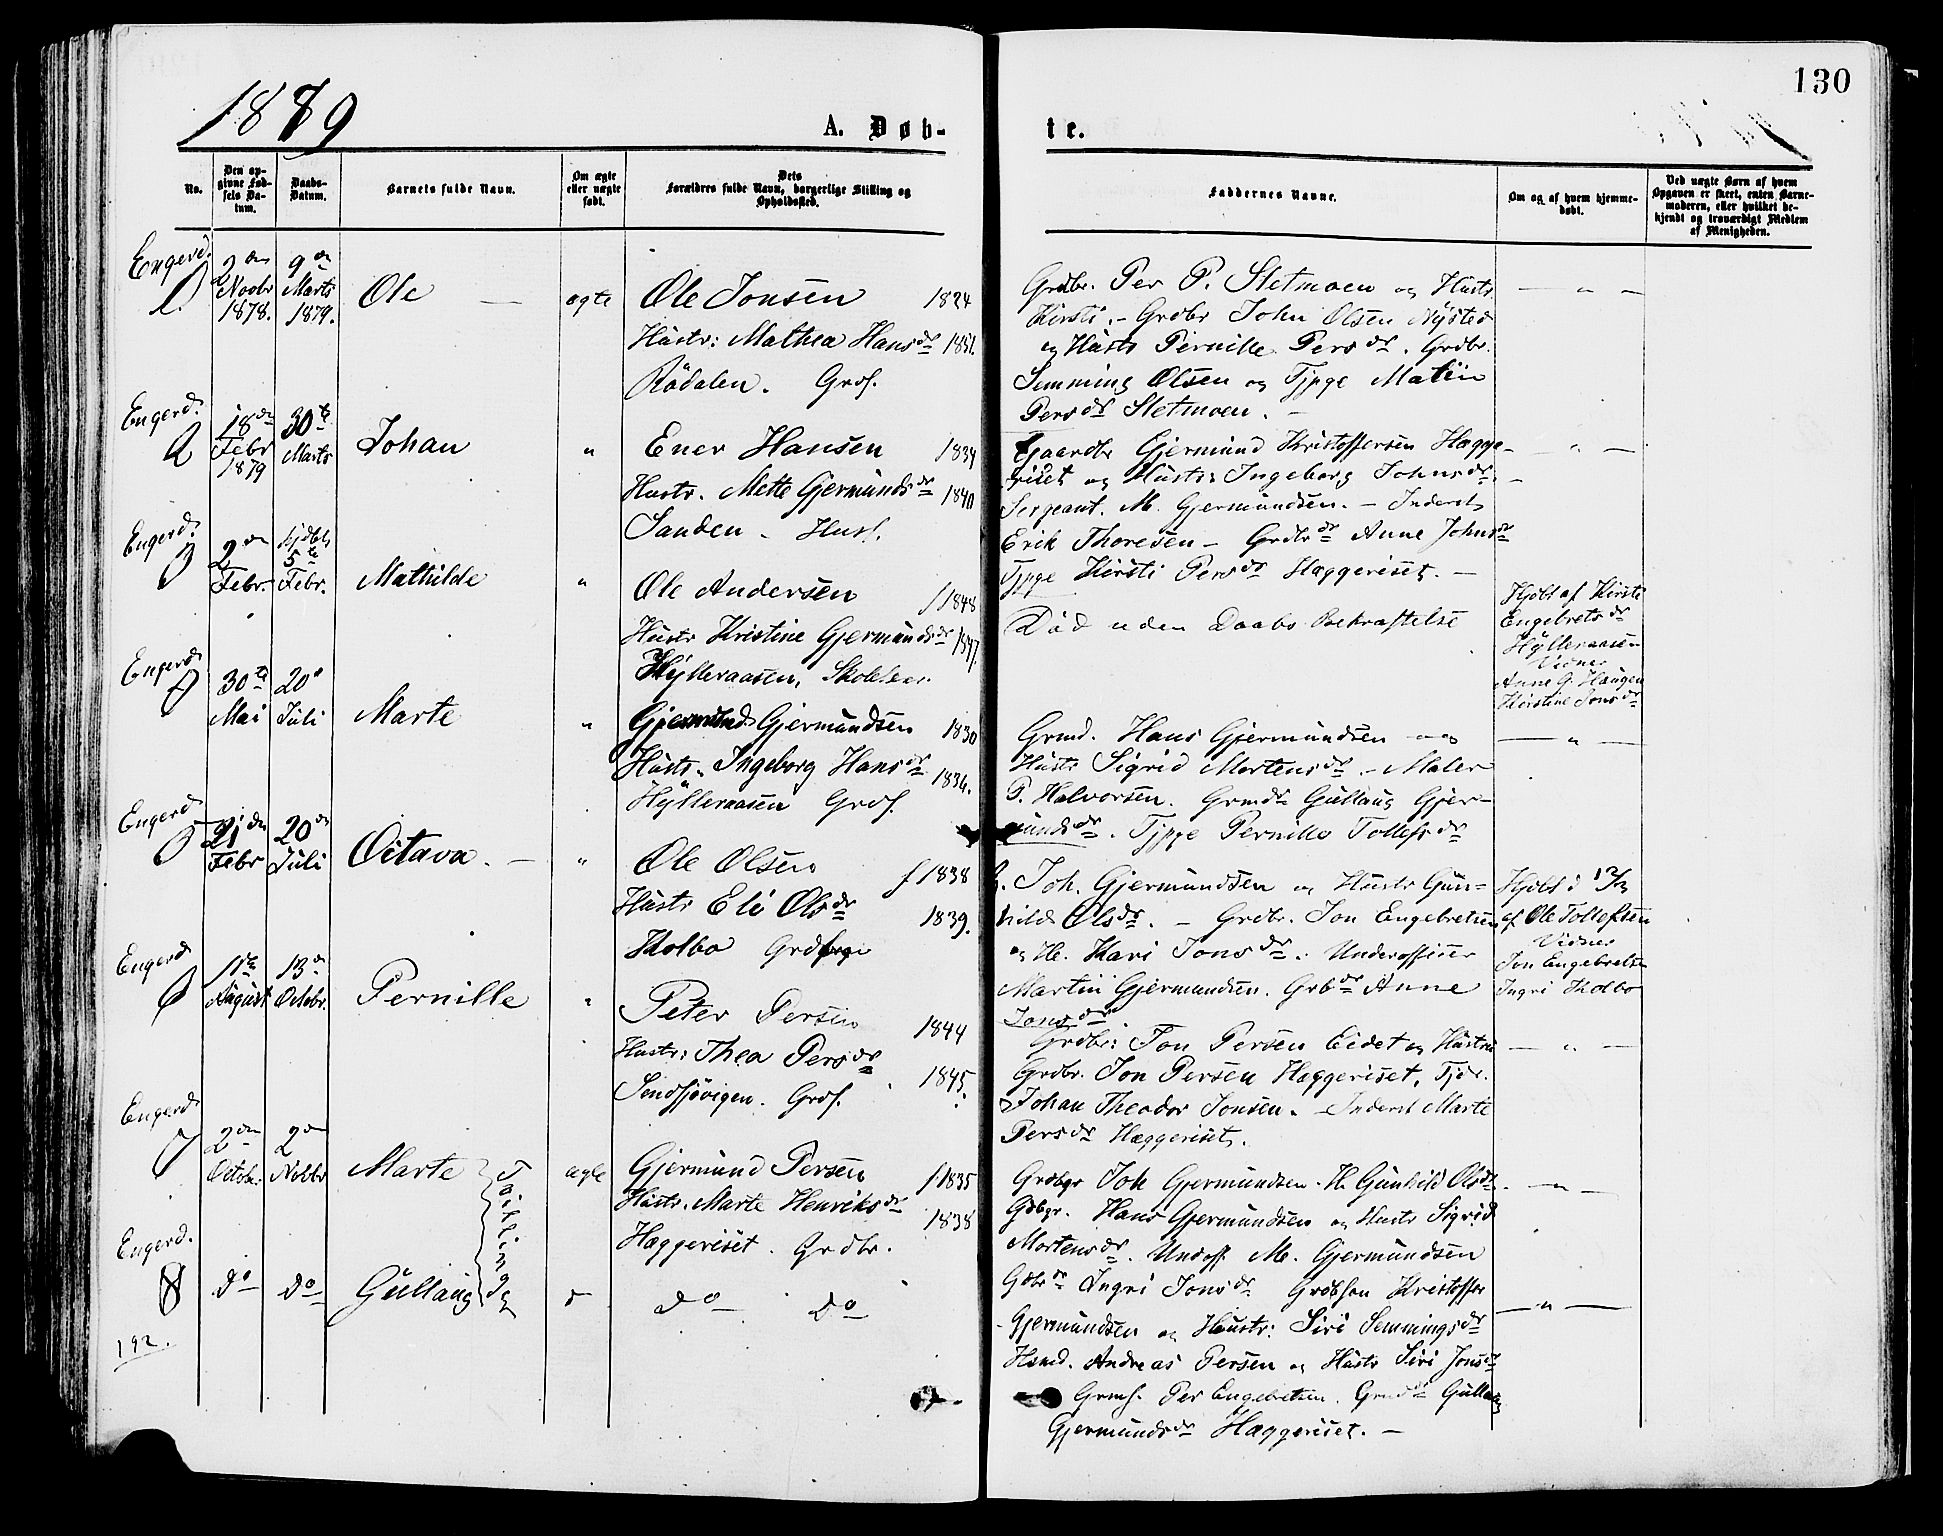 1879
A. Døb-
te.
130
No.
Den op-
givne Fød-
sels Da-
tum.
Daabs-
Datum.
Barnets fulde Navn.
Om ægte
eller uægte
født.
Dets
Forældres fulde Navn, borgerlige Stilling og
Opholdssted.
Faddernes Navne.
Om og af hvem hjemme-
døbt.
Ved uægte Børn af hvem
Opgaven er skeet, enten Barne-
moderen, eller hvilket be-
kjendt og troværdigt Medlem
af Menigheden.
Engerd.
1.
2den
Novbr
1878.
9de
Marts
1879.
Ole
ægte
Ole Jonsen 1824
Hustr: Mathea Hansdr 1851.
Rödalen. Grdf.
Grdbr. Per P. Sletmoen og Hustr
Kirsti. - Grdbr John Olsen Nysted
og Hustr Pernille Persdr. Grdbr.
Semming Olsen og Tjpge Matlin
Persdr Sletmoen. -
— " —
Engerd.
2
18de
Febr
1879
30te
Marts
Johan
"
Ener Hansen 1834
Hustr. Mette Gjermundsdr 1840
Sanden - Husf.
Gaardbr Gjermund Kristoffersen Hægge-
riset og Hustr: Ingeborg Johnsdr. -
Sergeant. M. Gjermundsen. - Inderst
Erik Thoresen - Grdbrdr Anne Johnsdr
Tjpge Kirsti Persdr Hæggeriset. -
— " —
Engerd.
3
2den
Febr.
hjdbt
5te
Febr.
Mathilde
"
Ole Andersen f 1848
Hustr Kristine Gjermundsdr 1847.
Hylleraasen, Skolelær.
Död uden Daabs Bekræftelse
Hjdbt af Kirsti
Engebretsdr
Hylleraasen
Vidner
Anne G. Haugen
Kirstine Jonsdr
Engerd
4
30te
Mai
20de
Juli
Marte
"
Gjermund Gjermundsen 1830
Hustr. Ingeborg Hansdr 1836.
Hylleraasen Grdf.
Grmd. Hans Gjermundsen og
Hustr Sigrid Mortensdr. - Maler
P. Halvorsen. Grmdr Gullaug Gjer-
mundsdr. Tjpge Pernille Tollefsdr
— " —
Engerd
5
21de
Febr
20de
Juli
Octava. -
"
Ole Olsen f 1838
Hustr Eli Olsdr 1839.
Kolbo Grdbrgr
G. Joh. Gjermundsen og Hustr Gun-
hild Olsdr. - Grdbr. Jon Engebretsen
og H. Kari Jonsdr. Underofficer
Martin Gjermundsen. Grbdr Anne
Jonsdr.
Hjdbt d 12/3
af Ole Tollefsen
Vidner
Jon Engebretsen
Ingri Kolbo
Engerd
6
11te
August
13de
Octobr.
Pernille
"
Peter Persen 1844
Hustr: Thea Persdr 1845.
Sendsjövigen. Grdf.
Grdbr: Jon Persen Eidet og Hustru
Grdbr. Jon Persen Hæggeriset, Tjdr.
Johan Theodor Jonsen. - Inderst Marte
Persdr Hæggeriset.
— " —
Engerd
7
2den
Octobr.
2den
Novbr
Marte
Tvillinger
ægte
Gjermund Persen f 1835
Hustr. Marte Henriksdr 1838
Hæggeriset. Grdbr.
Grdbgr Joh Gjermundsen. H. Gunhild Olsdr.
Gdbgr. Hans Gjermundsen og Hustr Sigrid
Mortensdr. Undoff. M. Gjermundsen
Gdbrdr Ingri Jonsdr Grdbson Kristoffer
— " —
Engerd.
8
do
do
Gullaug
do do
Gjermundsen og Hustr: Siri Semmingsdr
Hsmd. Andreas Persen og Hustr Siri Jonsdr
Grmf. Per Engebretsen. Grmdr Gullaug
Gjermundsdr Hæggeriset. -
— " —
192.